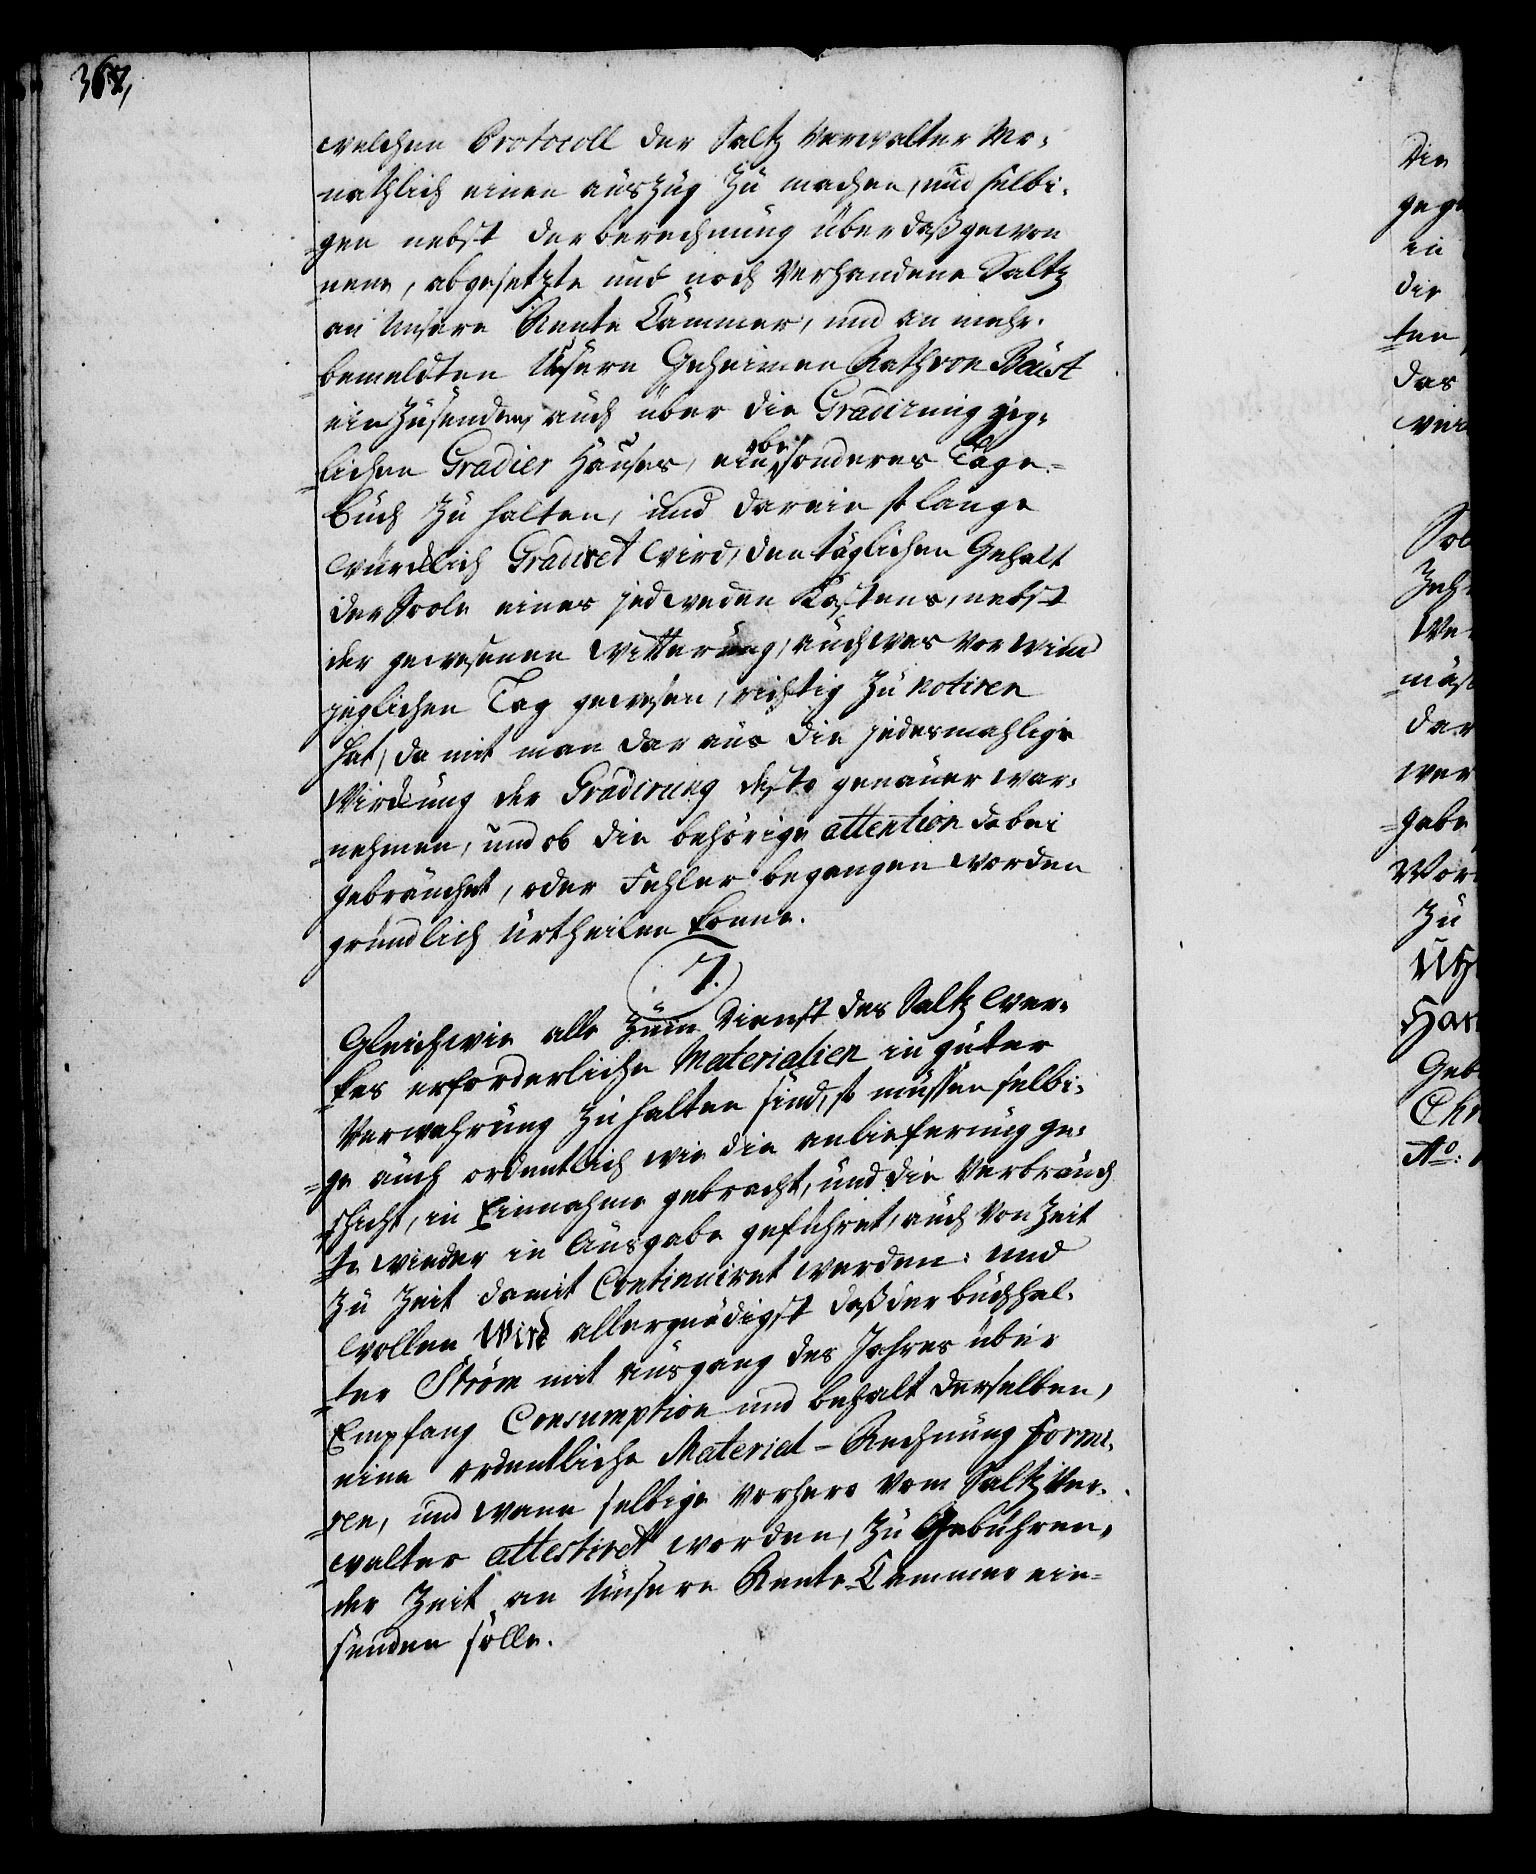 welchen Protocoll der Saltz Verwalter Mo-
nathlich einen auszug zu machen, und selbi-
gen nebst der berechnung über daß gewon
nene, abgesetzte und noch Verhandene Saltz
an Unsere Rente Cammer, und an mehr-
bemeldten Unsern Geheimen Rath von Beust
ein zusenden, auch über die Gradirung jeg-
lichen Gradier Hauses, ein besonderes Tage-
buch zu halten, und darein so lange
würcklich Gradiret wird, den täglichen Gehalt
der Soole eines jedweden Kastens, nebst
der gewesenen Witterung, auch was vor wind
jeglichen Tag gewesen, richtig zu notiren
hat, da mit man dar aus die jedesmahlige
Wirckung der Gradirung desto genauer war-
nehmen, und ob die behörige attention dabei
gebrauchet, oder Fehler begangen worden
gründlich urtheilen könne.
7.)
Gleichwie alle zum Dienst des Saltz Wer-
kes erforderliche Materialien in guter
Verwahrung zu halten sind, so müssen selbi-
ge auch ordentlich wie die anlieferung ge-
schicht, in Einnahme gebracht, und die Verbrauch
te wieder in Ausgabe geführet, auch von Zeit
zu Zeit damit Continuiret werden: und
wollen Wir allergnädigst daß der buchhal-
ter Ström mit ausgang des Jahres über
Empfang Consumption und behalt derselben,
eine ordentliche Material-Rechnung formi-
ren, und wann selbige vorhero vom Saltz Ver-
walter attestiret worden, zu Gebühren-
der Zeit an Unsere Rente-Cammer ein-
senden solle.
Die
in
die
ten
das
Zu
Har
Geb
Chr
Aº: